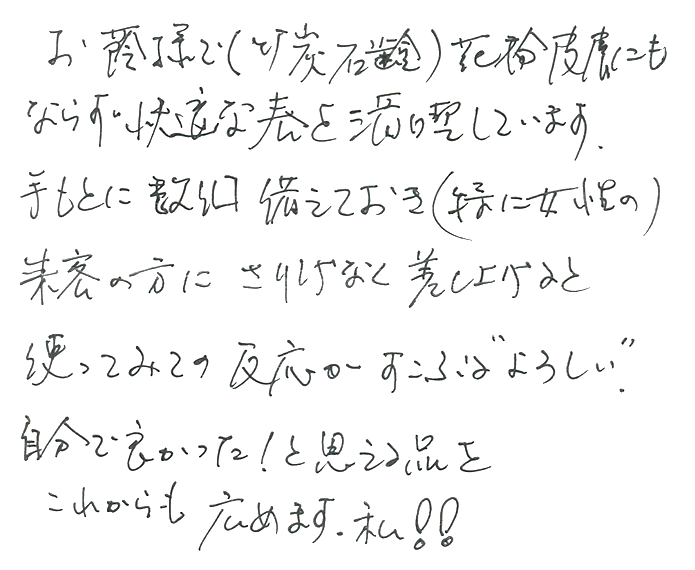 お蔭様で(竹炭石鹸)花粉皮膚にも
ならず快適な春を満喫しています.
手もとに数個備えておき(特に女性の)
来客の方にさりげなく差し上げると
使ってみての反応がすこぶる"よろしい".
自分で良かった!と思える品を
これからも広めます.私!!